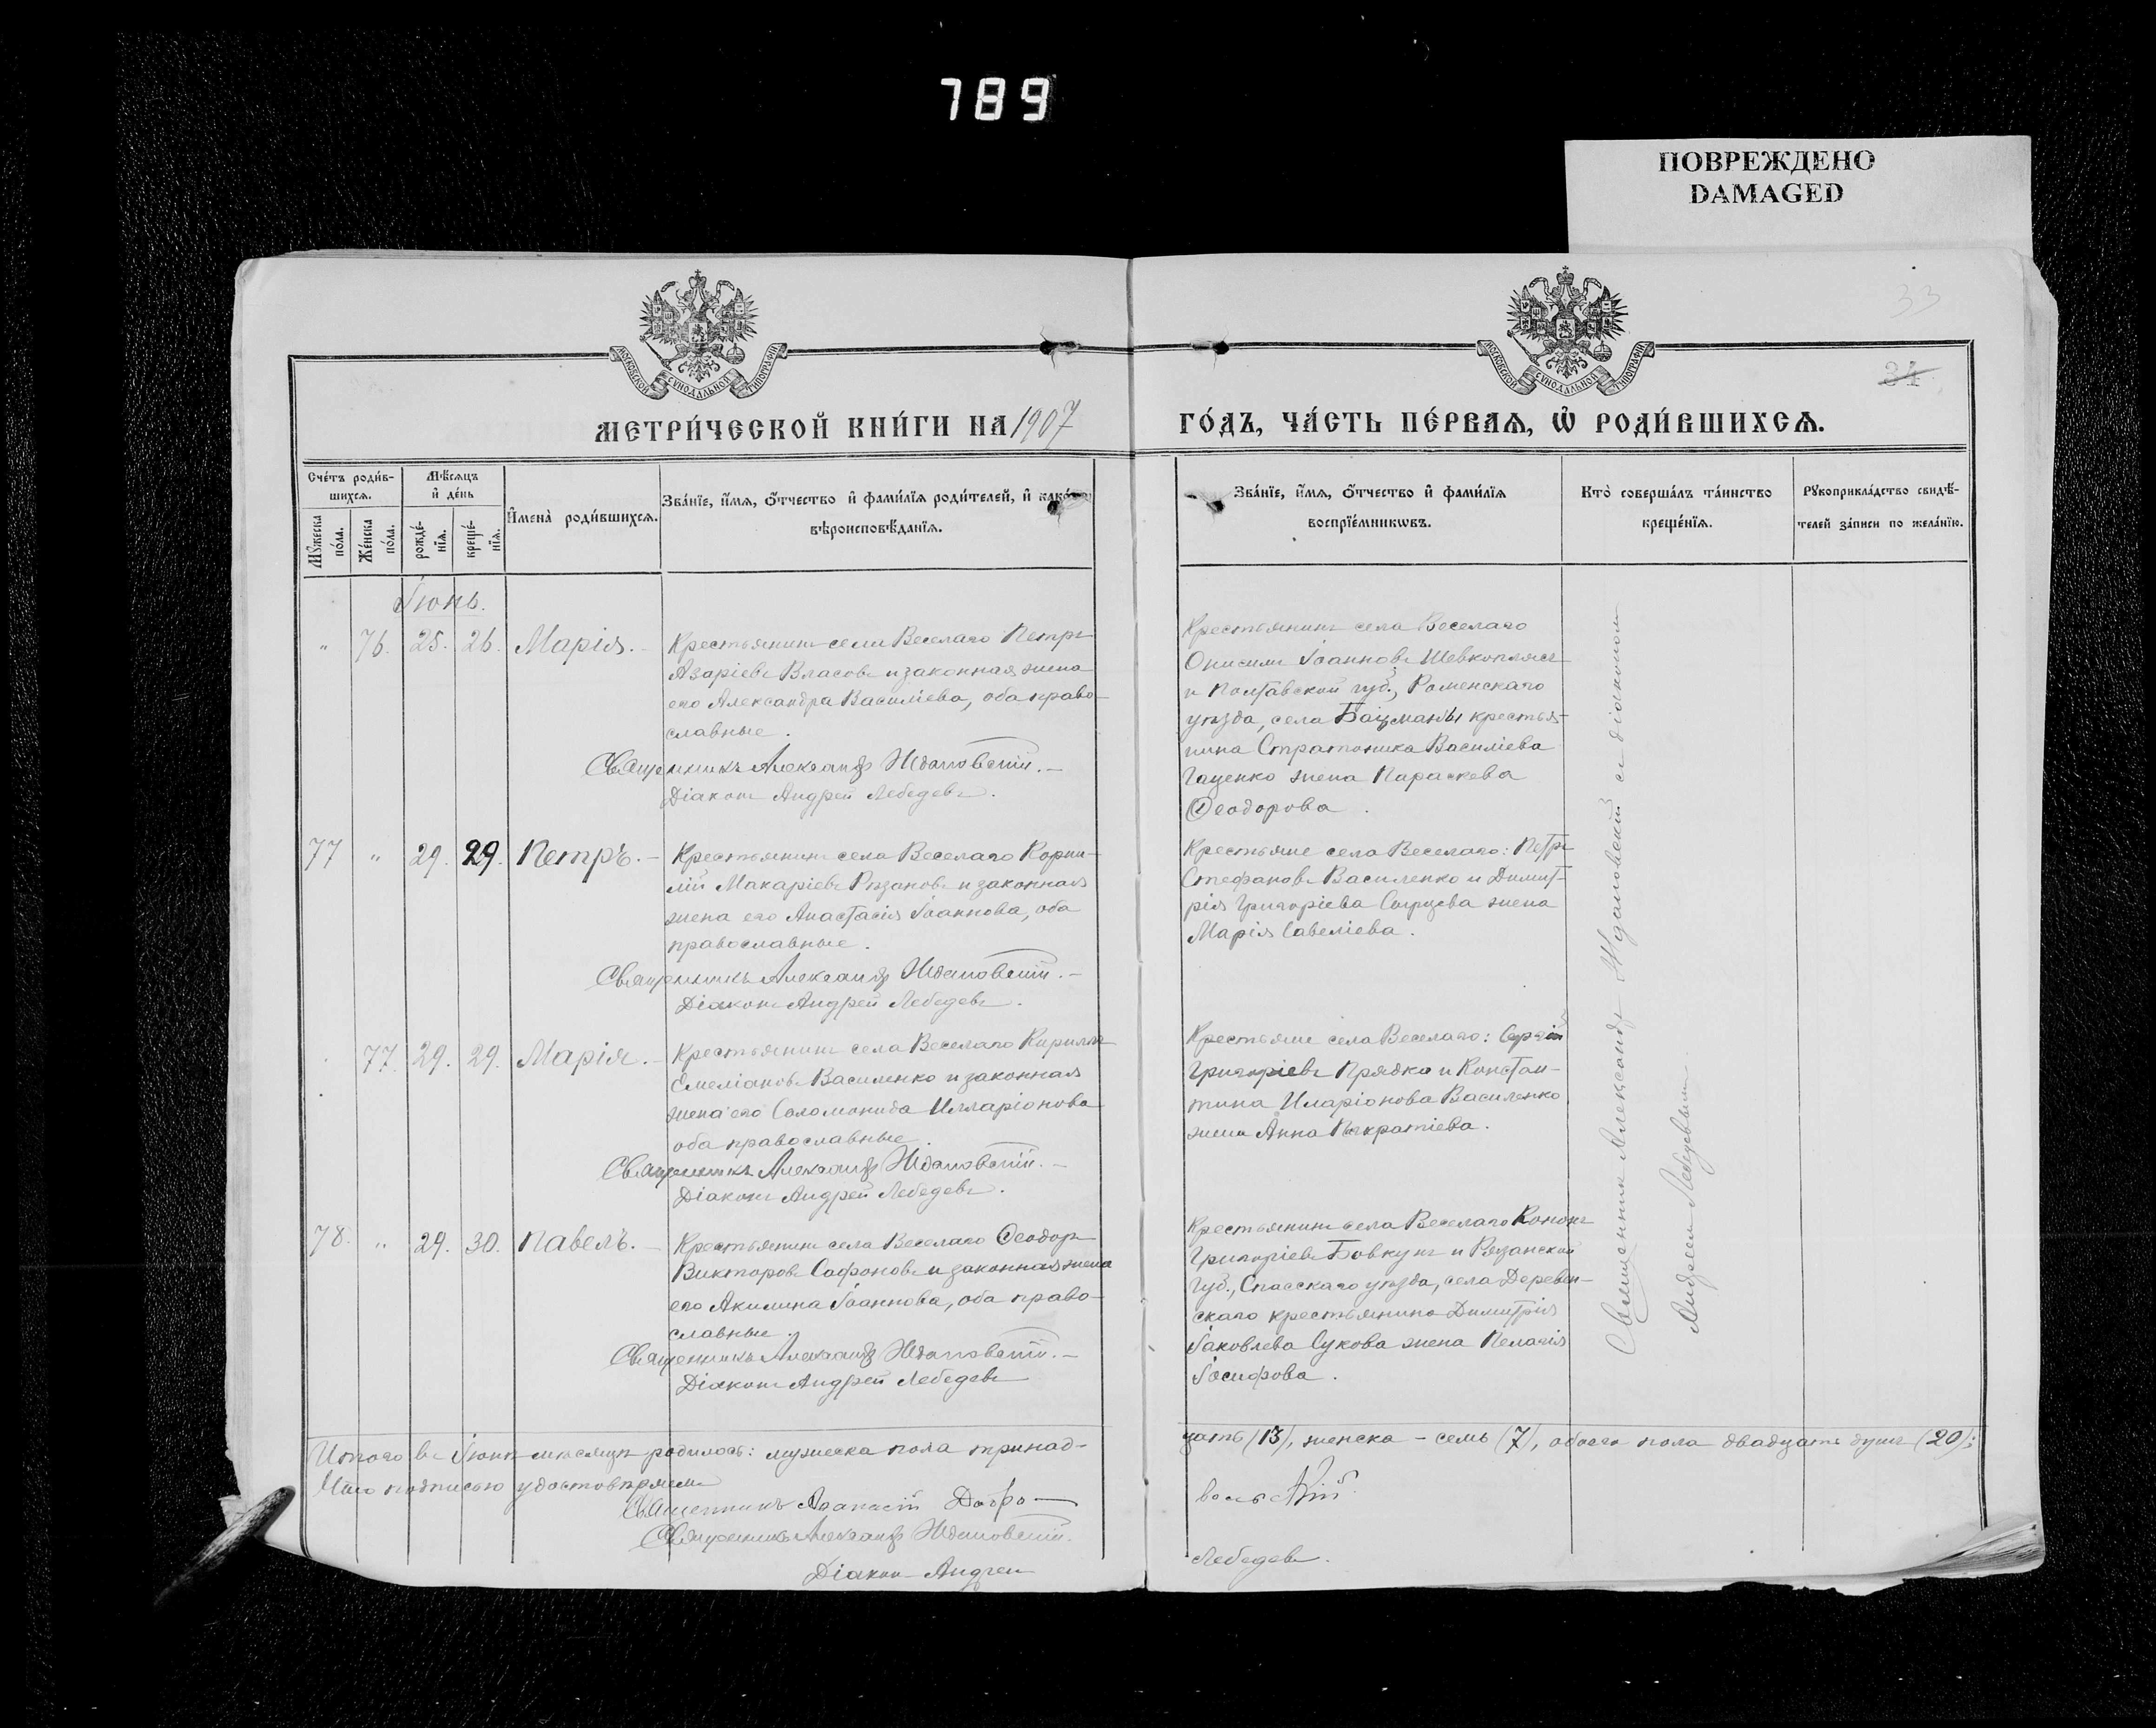 789
ПОВРЕЖДЕНО
DAMAGED
33
34
МОСКОВСКОЙ СѴНОДАЛЬНОЙ ТИПОГРАФІИ
МОСКОВСКОЙ СѴНОДАЛЬНОЙ ТИПОГРАФІИ
МЕТРИ́ЧЕСКОЙ КНИ́ГИ НА 1907
ГО́ДЪ, ЧА́СТЬ ПЕ́РВАѦ, Ѡ҆ РОДИ́ВШИХСѦ.
Сче́тъ роди́в-
шихсѧ.
Мꙋ́жеска
по́ла.
Же́нска
по́ла.
Мѣ́сѧцъ
и҆ де́нь
рожде́-
нїѧ.
креще́-
нїѧ.
И҆мена̀ роди́вшихсѧ.
Зва́нїе, и҆́мѧ, ѻ҆́тчество и҆ фами́лїѧ роди́телей, и҆ како́гѡ
вѣроисповѣ́данїѧ.
Зва́нїе, и҆́мѧ, ѻ҆́тчество и҆ фами́лїѧ
воспрїе́мникѡвъ.
Кто̀ соверша́лъ та́инство
креще́нїѧ.
Рꙋкоприкла́дство свидѣ́-
телей за́писи по жела́нїю.
Іюнь.
" 76. 25. 26. Марія. -
Крестьянинъ села Веселаго Петръ
Азаріевъ Власовъ и законная жена
его Александра Василіева, оба право-
славные.
Священникъ Александр Ждановскій. -
Діаконъ Андрей Лебедевъ.
Крестьянинъ села Веселаго
Онисимъ Іоанновъ Шевкоплясъ
и Полтавской губ., Роменскаго
уѣзда, села Бацманы крестья-
нина Стратоника Василіева
Гаценко жена Параскева
Ѳеодорова.
77 " 29. 29. Петръ. -
Крестьянинъ села Веселаго Корни-
лій Макаріевъ Рязановъ и законная
жена его Анастасія Іоаннова, оба
православные.
Священникъ Александр Ждановскій. -
Діаконъ Андрей Лебедевъ.
Крестьяне села Веселаго: Петръ
Стефановъ Василенко и Димит-
рія Григоріева жена
Марія Савеліева.
77. 29. 29. Марія. -
Крестьянинъ села Веселаго Кириллъ
Емеліановъ Василенко и законная
жена его Соломонида Илларіонова
оба православные.
Священникъ Александр Ждановскій. -
Діаконъ Андрей Лебедевъ.
Крестьяне села Веселаго: Сергій
Григоріевъ Прядко и Констан-
тина Иларіонова Василенко
жена Анна Панкратіева.
78. " 29. 30. Павелъ. -
Крестьянинъ села Веселаго Ѳеодоръ
Викторовъ Сафоновъ и законная жена
его Акилина Іоаннова, оба право-
славные.
Священникъ Александр Ждановскій. -
Діаконъ Андрей Лебедевъ
Крестьянинъ села Веселаго Кононъ
Григоріевъ Бовкунъ и Рязанской
губ., Спасскаго уѣзда, села Деревен-
скаго крестьянина Димитрія
Іаковлева Сукова жена Пелагія
Іосифова.
Священникъ Александръ Ждановскій съ діакономъ
Андреемъ Лебедевымъ
Итого въ Іюнѣ мѣсяцѣ родилось: мужеска пола тринад-
цать (13), женска - семь (7), обоего пола двадцать душъ (20);
подписью удостовѣряемъ
Священникъ Аѳанасій Добро-
вольскій
Священникъ Александр Ждановскій.
Діаконъ Андрей
Лебедевъ.